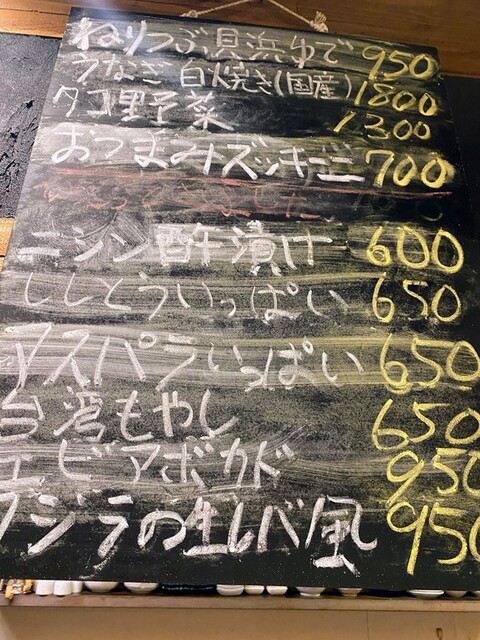 ねりつぶ貝浜ゆで 950
うなぎ白焼き(国産) 1800
タコ野菜 1300
おつまみズッキーニ 700
ニシン酢漬け 600
ししとういっぱい 650
アスパラいっぱい 650
台湾もやし 650
エビアボカド 950
クジラの生レバ風 950